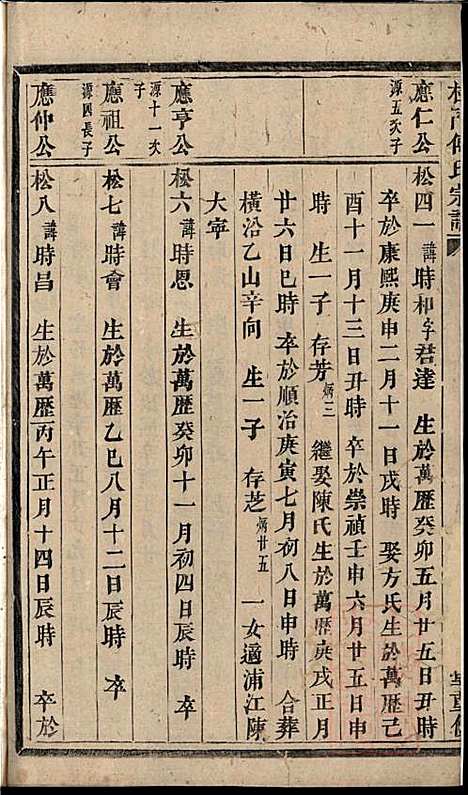 應仁公
源五次子
松四一諱時和字君達 生於萬歷癸卯五月廿五日丑時
卒於康熙庚申二月十一日戌時 娶方氏生於萬歷己
酉十一月十三日丑時 卒於崇禎壬申六月廿五日申
時 生一子 存芳炳三 繼娶陳氏生於萬歷庚戌正月
廿六日巳時 卒於順治庚寅七月初八日申時 合葬
橫沿乙山辛向 生一子 存芝炳廿五 一女適浦江陳
大宰
應亨公
源十一次子
松六諱時恩 生於萬歷癸卯十一月初四日辰時 卒
應祖公
松七諱時會 生於萬歷乙巳八月十二日辰時 卒
應仲公
源四長子
松八諱時昌 生於萬歷丙午正月十四日辰時 卒於